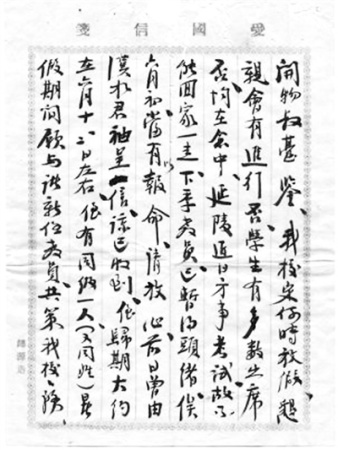 愛國信箋
開物叔臺鑒、我校定何時放假、懇
親會有進行否、學生有多數出席
否、均在念中、延陵近日方事考試、故不
能回家一走、下季教員已暫得頭緒、俟
六月初當有以報命、請放心、前日曾由
君袖呈一信、諒已收到、侄歸期大約
在六月十二日左右、侄有同級一人(又同姓)、暑
假期間願与諸新任教員、共策我校、